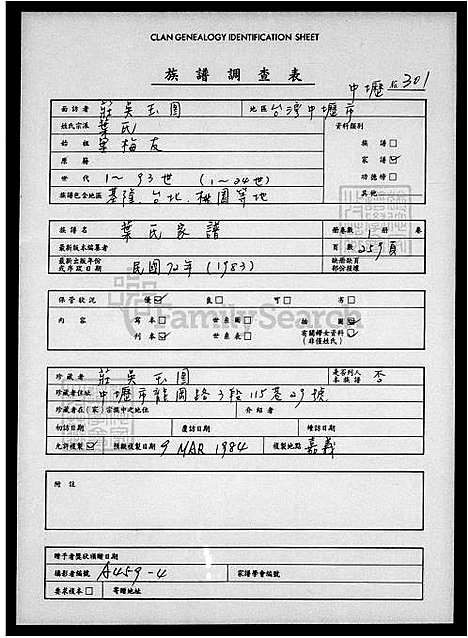 CLAN GENEALOGY IDENTIFICATION SHEET
族譜調查表
中壢 301
面訪者 莊吳玉圓 地區 台灣中壢市
姓氏宗派 葉氏 資料類別
始祖 葉梅友 族譜□
原籍 家譜☑
世代 1~93世 (1~24世) 功德榜□
族譜包含地區 基隆、台北、桃園等地 其他
族譜名 葉氏家譜 冊卷數 1 冊 卷
最新版本編纂者 頁數 259頁
最新出版年份或序跋日期 民國72年(1983) 缺冊缺頁部份接確
保管狀況 優☑ 良□ 可□ 劣□
內容 寫本□ 世系圖□ 插圖☑
刊本☑ 世系表□ 有關婦女資料☑ (非僅姓氏)
FamilySearch
珍藏者 莊吳玉圓 是否列入本族譜 否
珍藏者住址 中壢市龍岡路3段115巷29號
珍藏者在(家)宗族中之地位 介紹者
初訪日期 覆訪日期 續訪日期
允許複製☑ 預擬複製日期 9 MAR 1984 複製地點 嘉義
附註
贈予者獎狀頒贈日期
攝影者編號 A459-4 家譜學會編號
要求複本□ 寄贈地址